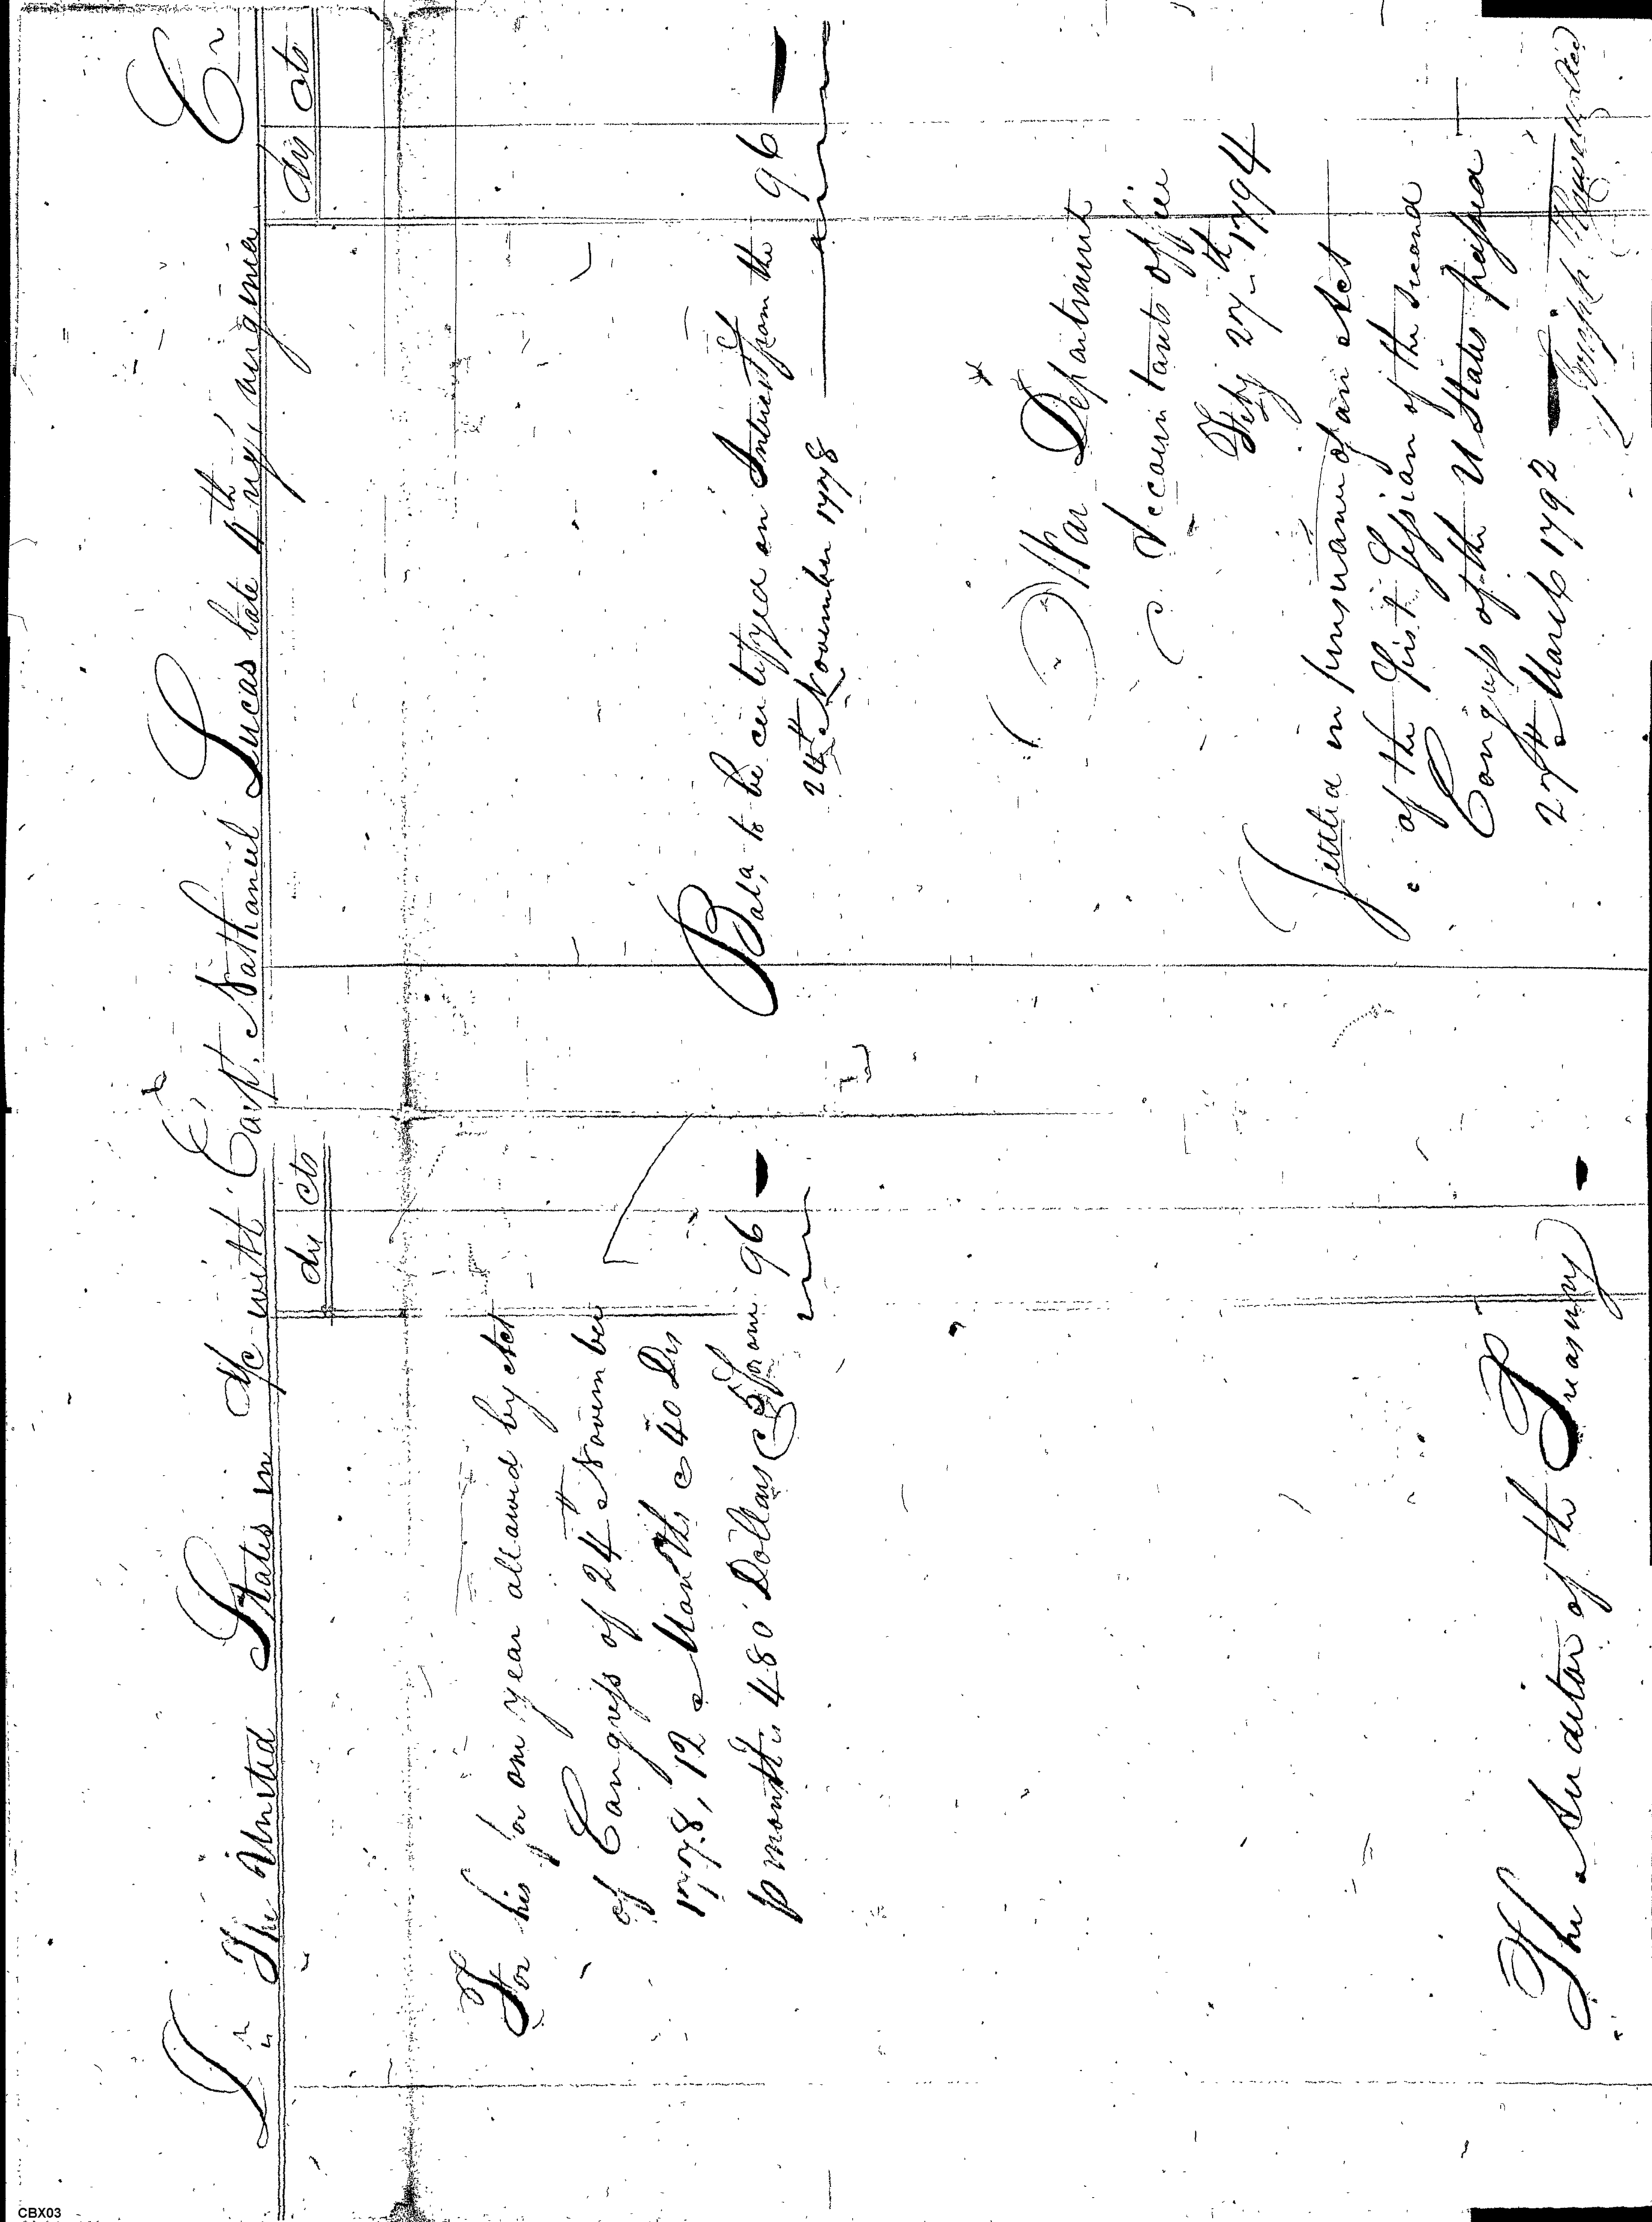 Dr The United States in A/c with Capt. Nathaniel Lucas late 4th regt virginia Cr
drs cts
For his for one year allowed by Act
of Congress of 24th November
1778, 12 Months @ 40 Drs
p month is 480 Dollars @ 5 for one 96
The Auditor of the Treasury
drs cts
Bala, to be certifyed on Interest from the 96
24th November 1778
War Department
Accountants office
Feby 27th 1794
Settled in pursuance of an Act
of the first Session of the second
Congress of the U States passed
27th March 1792
Joseph Howell
CBX03